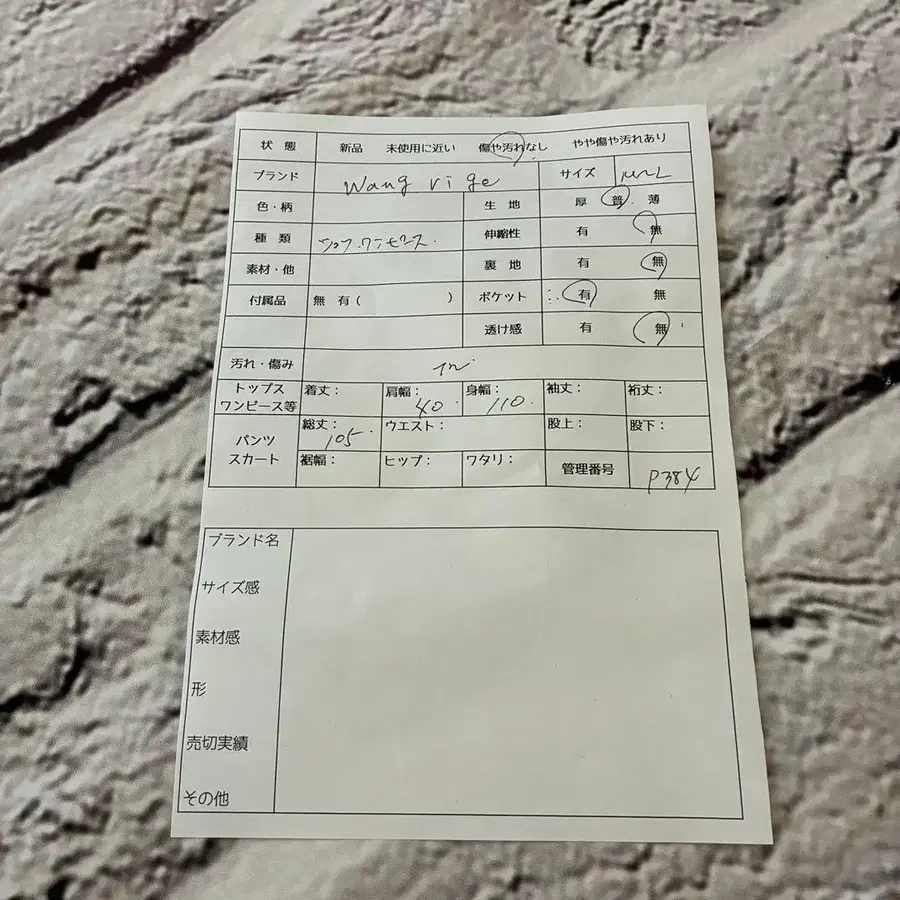 状 態 新品 未使用に近い 傷や汚れなし やや傷や汚れあり
ブランド Wang rige サイズ M~L
色・柄 生 地 厚 普 薄
種 類 伸縮性 有 無
素材・他 裏 地 有 無
付属品 無 有 ( ) ポケット 有 無
透け感 有 無
汚れ・傷み
トップス ワンピース等 着丈: 肩幅: 40. 身幅: 110. 袖丈: 裄丈:
パンツ スカート 総丈: 105. ウエスト: 股上: 股下:
裾幅: ヒップ: ワタリ: 管理番号 P384
ブランド名
サイズ感
素材感
形
売切実績
その他